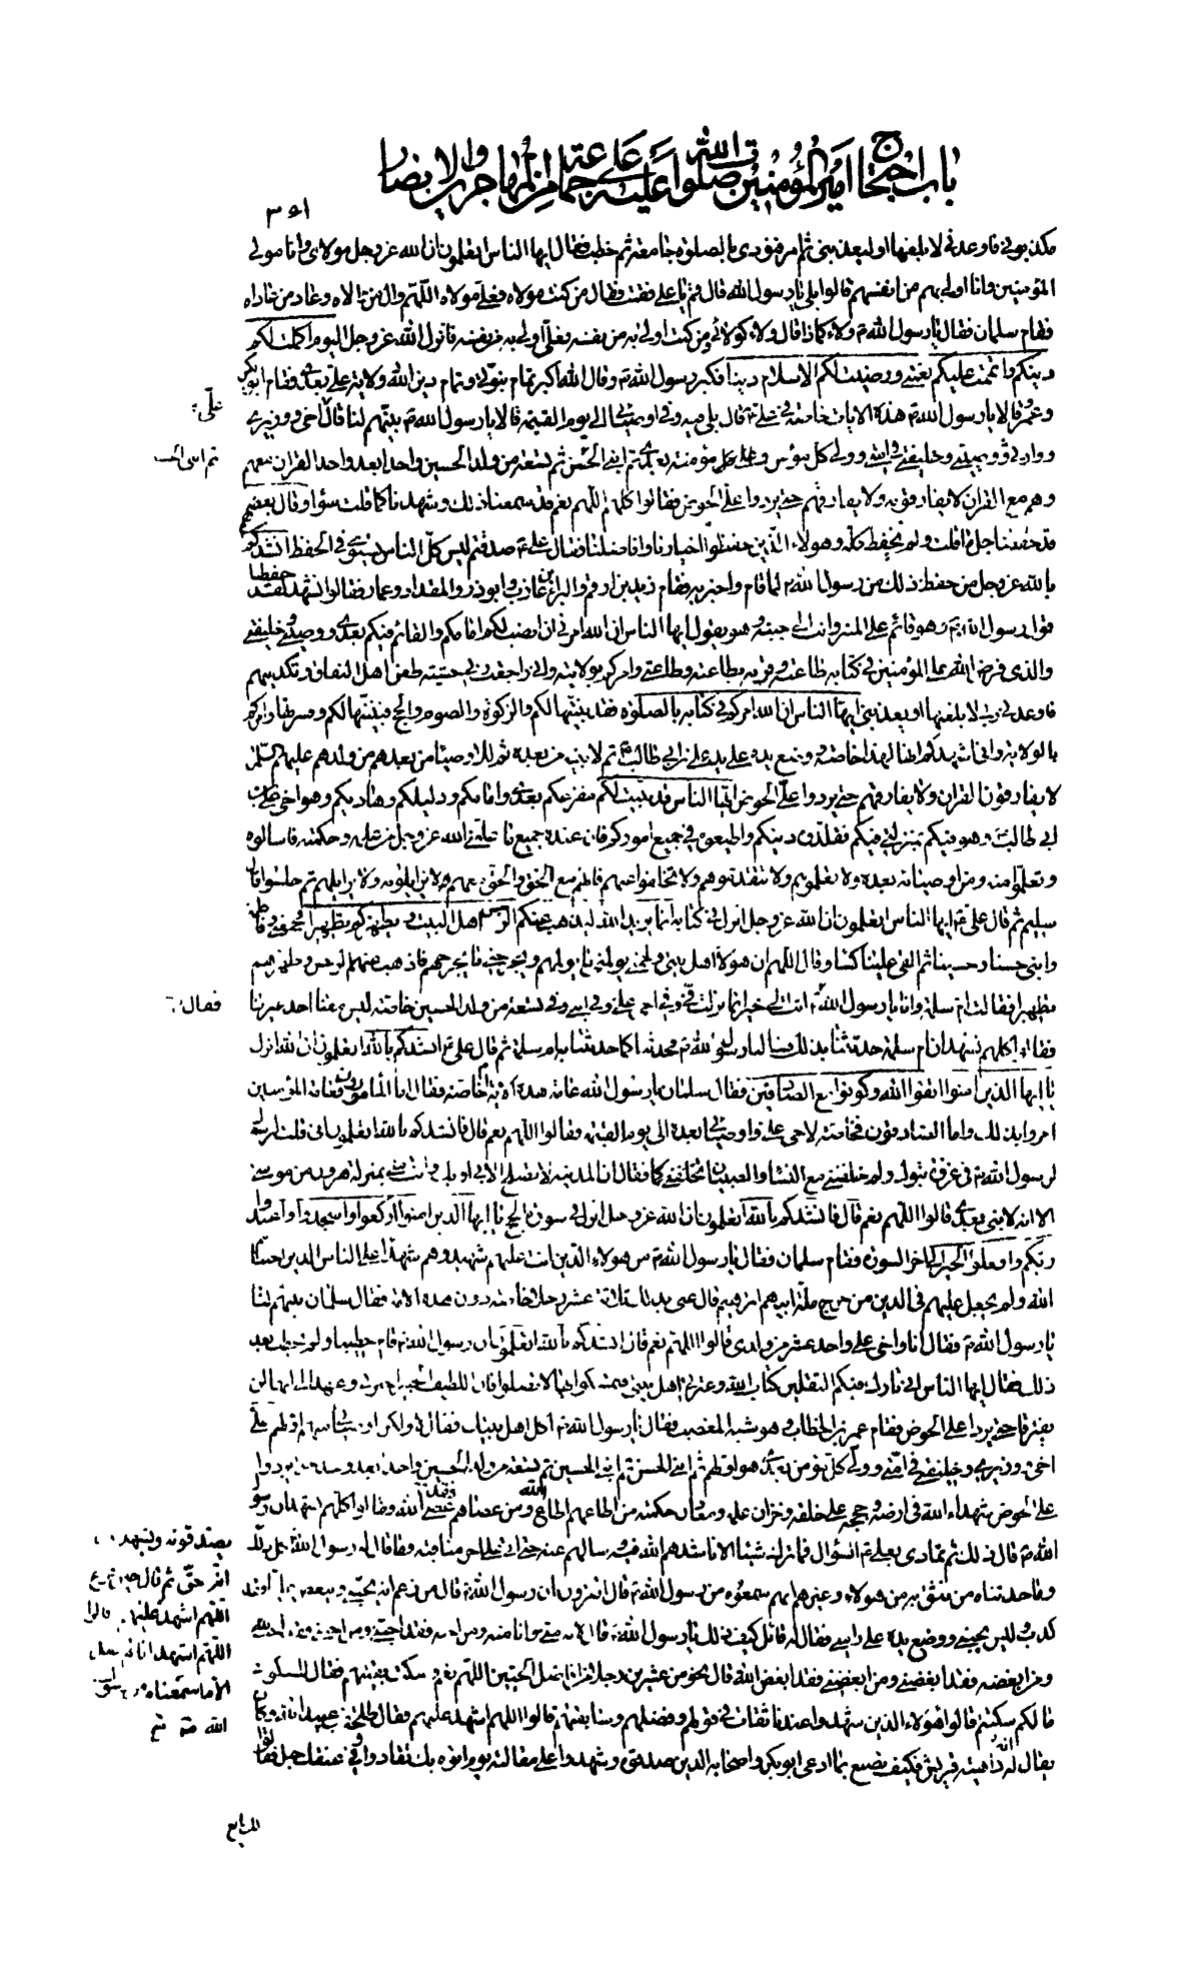 باب احتجاج امير المؤمنين صلوات الله عليه على جماعة من المهاجرين والانصار
٣٥١
مكذبونى فاوعدنى لابلغها او ليعذبنى ثم امر فنودى بالصلوة جامعة ثم خطب فقال ايها الناس اتعلمون ان الله عز وجل مولاى وانا مولى
المؤمنين وانا اولى بهم من انفسهم قالوا بلى يا رسول الله قال قم يا على فقمت فقال من كنت مولاه فعلى مولاه اللهم وال من والاه وعاد من عاداه
فقام سلمان فقال يا رسول الله ولاء كماذا فقال ولاء كولائى من كنت اولى به من نفسه فعلى اولى به من نفسه فانزل الله عز وجل اليوم اكملت لكم
دينكم واتممت عليكم نعمتى ورضيت لكم الاسلام دينا فكبر رسول الله وقال الله اكبر تمام نبوتى وتمام دين الله ولاية على بعدى فقام ابو بكر
وعمر فقالا يا رسول الله هذه الايات خاصة فى على قال بلى فيه وفى اوصيائى الى يوم القيمة قالا يا رسول الله بينهم لنا قال اخى ووزيرى
ووارثى ووصيى وخليفتى فى امتى وولى كل مؤمن بعدى ثم ابنى الحسن ثم تسعة من ولد الحسين واحدا بعد واحد القران معهم
وهم مع القران لا يفارقونه ولا يفارقهم حتى يردوا على الحوض فقالوا كلهم اللهم نعم قد سمعنا ذلك وشهدنا كما قلت سواء وقال بعضهم
قد حفظنا جل ما قلت ولم نحفظ كله وهولاء الذين حفظوا اخيارنا وافاضلنا فقال على صدقتم ليس كل الناس يستوى فى الحفظ انشدكم
بالله عز وجل من حفظ ذلك من رسول الله لما قام واخبر به فقام زيد بن ارقم والبراء بن عازب وابو ذر والمقداد وعمار فقالوا نشهد لقد حفظنا
قول رسول الله وهو قائم على المنبر وانت الى جنبه وهو يقول ايها الناس ان الله امرنى ان انصب لكم امامكم والقائم فيكم بعدى ووصيى وخليفتى
والذى فرض الله على المؤمنين فى كتابه طاعته وقرنه بطاعته وطاعتى وامركم بولايته وانى راجعت ربى خشية طعن اهل النفاق وتكذيبهم
فاوعدنى ربى لابلغنها او يعذبنى ايها الناس ان الله امركم فى كتابه بالصلوة فقد بينتها لكم والزكوة والصوم والحج فبينتها لكم وفسرتها وامركم
بالولاية وانى اشهدكم انها لهذا خاصة ووضع يده على يد على بن ابى طالب ثم لابنيه من بعده ثم للاوصيا من بعدهم من ولدهم عليهم السلم
لا يفارقون القران ولا يفارقهم حتى يردوا على الحوض ايها الناس قد بينت لكم مفزعكم بعدى وامامكم ودليلكم وهاديكم وهو اخى على بن
ابى طالب وهو فيكم بمنزلتى فيكم فقلدوه دينكم واطيعوه فى جميع اموركم فان عنده جميع ما علمنى الله عز وجل من علمه وحكمته فاسالوه
وتعلموا منه ومن اوصيائه بعده ولا تعلموهم ولا تتقدموهم ولا تخلفوا عنهم فانهم مع الحق والحق معهم ولا يزايلونه ولا يزايلهم ثم جلسوا قال
سليم ثم قال على ايها الناس اتعلمون ان الله عز وجل انزل فى كتابه انما يريد الله ليذهب عنكم الرجس اهل البيت ويطهركم تطهيرا فجمعنى وفاطمة
وابنى حسنا وحسينا ثم القى علينا كساء وقال اللهم ان هولاء اهل بيتى ولحمتى يولمنى ما يولمهم ويجرحنى ما يجرحهم فاذهب عنهم الرجس وطهرهم
تطهيرا فقالت ام سلمة وانا يا رسول الله انت الى خير انما نزلت فى وفى اخى على وفى ابنى وفى تسعة من ولد الحسين خاصة ليس معنا احد غيرنا
فقالوا كلهم نشهد ان ام سلمة حدثتنا بذلك فسالنا رسول الله فحدثنا كما حدثتنا به ام سلمة ثم قال على انشدكم بالله اتعلمون ان الله انزل
يا ايها الذين امنوا اتقوا الله وكونوا مع الصادقين فقال سلمان يا رسول الله عامة هذه الاية ام خاصة فقال اما المامورون فعامة المؤمنين
امروا بذلك واما الصادقون فخاصة لاخى على واوصيائى بعده الى يوم القيمة فقالوا اللهم نعم قال فانشدكم بالله اتعلمون انى قلت
لرسول الله فى غزوة تبوك ولم خلفتنى مع النساء والصبيان فقال ان المدينة لا تصلح الا بى او بك وانت منى بمنزلة هرون من موسى
الا انه لا نبى بعدى قالوا اللهم نعم قال فانشدكم بالله اتعلمون ان الله عز وجل انزل فى سورة الحج يا ايها الذين امنوا اركعوا واسجدوا واعبدوا
ربكم وافعلوا الخير الى اخر السورة فقام سلمان فقال يا رسول الله من هولاء الذين انت عليهم شهيد وهم شهداء على الناس الذين اجتباهم
الله ولم يجعل عليهم فى الدين من حرج ملة ابيهم ابرهيم قال عنى بذلك ثلاثة عشر رجلا خاصة دون هذه الامة فقال سلمان بينهم لنا
يا رسول الله فقال انا واخى على واحد عشر من ولدى قالوا اللهم نعم قال انشدكم بالله اتعلمون ان رسول الله قام خطيبا ولم يخطب بعد
ذلك فقال ايها الناس انى تارك فيكم الثقلين كتاب الله وعترتى اهل بيتى فتمسكوا بهما لا تضلوا فان اللطيف الخبير اخبرنى وعهد الى انهما لن
يفترقا حتى يردا على الحوض فقام عمر بن الخطاب وهو شبه المغضب فقال يا رسول الله اكل اهل بيتك فقال لا ولكن اوصيائى منهم اولهم على
اخى ووزيرى وخليفتى فى امتى وولى كل مؤمن بعدى هو اولهم ثم ابنى الحسن ثم ابنى الحسين ثم تسعة من ولد الحسين واحد بعد واحد حتى يردوا
على الحوض شهداء الله فى ارضه وحججه على خلقه وخزان علمه ومعادن حكمته من اطاعهم اطاع الله ومن عصاهم فقد عصى الله فقالوا كلهم نشهد ان رسول
الله قال ذلك ثم تمادى بعلى السؤال فما ترك شيئا الا ناشدهم الله فيه وسالهم عنه حتى اتى على اخر مناقبه وما قال له رسول الله كل ذلك
وقالوا حدثناه من نثق به من هولاء وغيرهم انهم سمعوه من رسول الله قال اتقرون ان رسول الله قال من زعم انه يحبنى ويبغض عليا فقد
كذب ليس يحبنى ووضع يده على راسى فقال له قائل كيف ذلك يا رسول الله قال لانه منى وانا منه ومن احبه فقد احبنى ومن احبنى فقد احب الله
ومن ابغضه فقد ابغضنى ومن ابغضنى فقد ابغض الله قال نحو من عشرين رجلا من افاضل الحيين اللهم نعم وسكت بقيتهم فقال للسكوت
ما لكم سكتم قالوا هولاء الذين شهدوا عندنا ثقات فى قولهم وفضلهم وسابقتهم قالوا اللهم اشهد عليهم فقال طلحة بن عبيد الله وكان
يقال له داهية قريش فكيف نصنع بما ادعى ابو بكر واصحابه الذين صدقوه وشهدوا على مقالته يوم اتوه بك تقاد وفى عنقك حبل فقالوا
لك بايع
على
ثم ابنى الحسين
فقال
يصدقونه ويشهدون
انه حق ثم قال حين
اللهم اشهد عليهم قالوا
اللهم اشهد انا لم نقل
الا ما سمعناه من رسول
الله